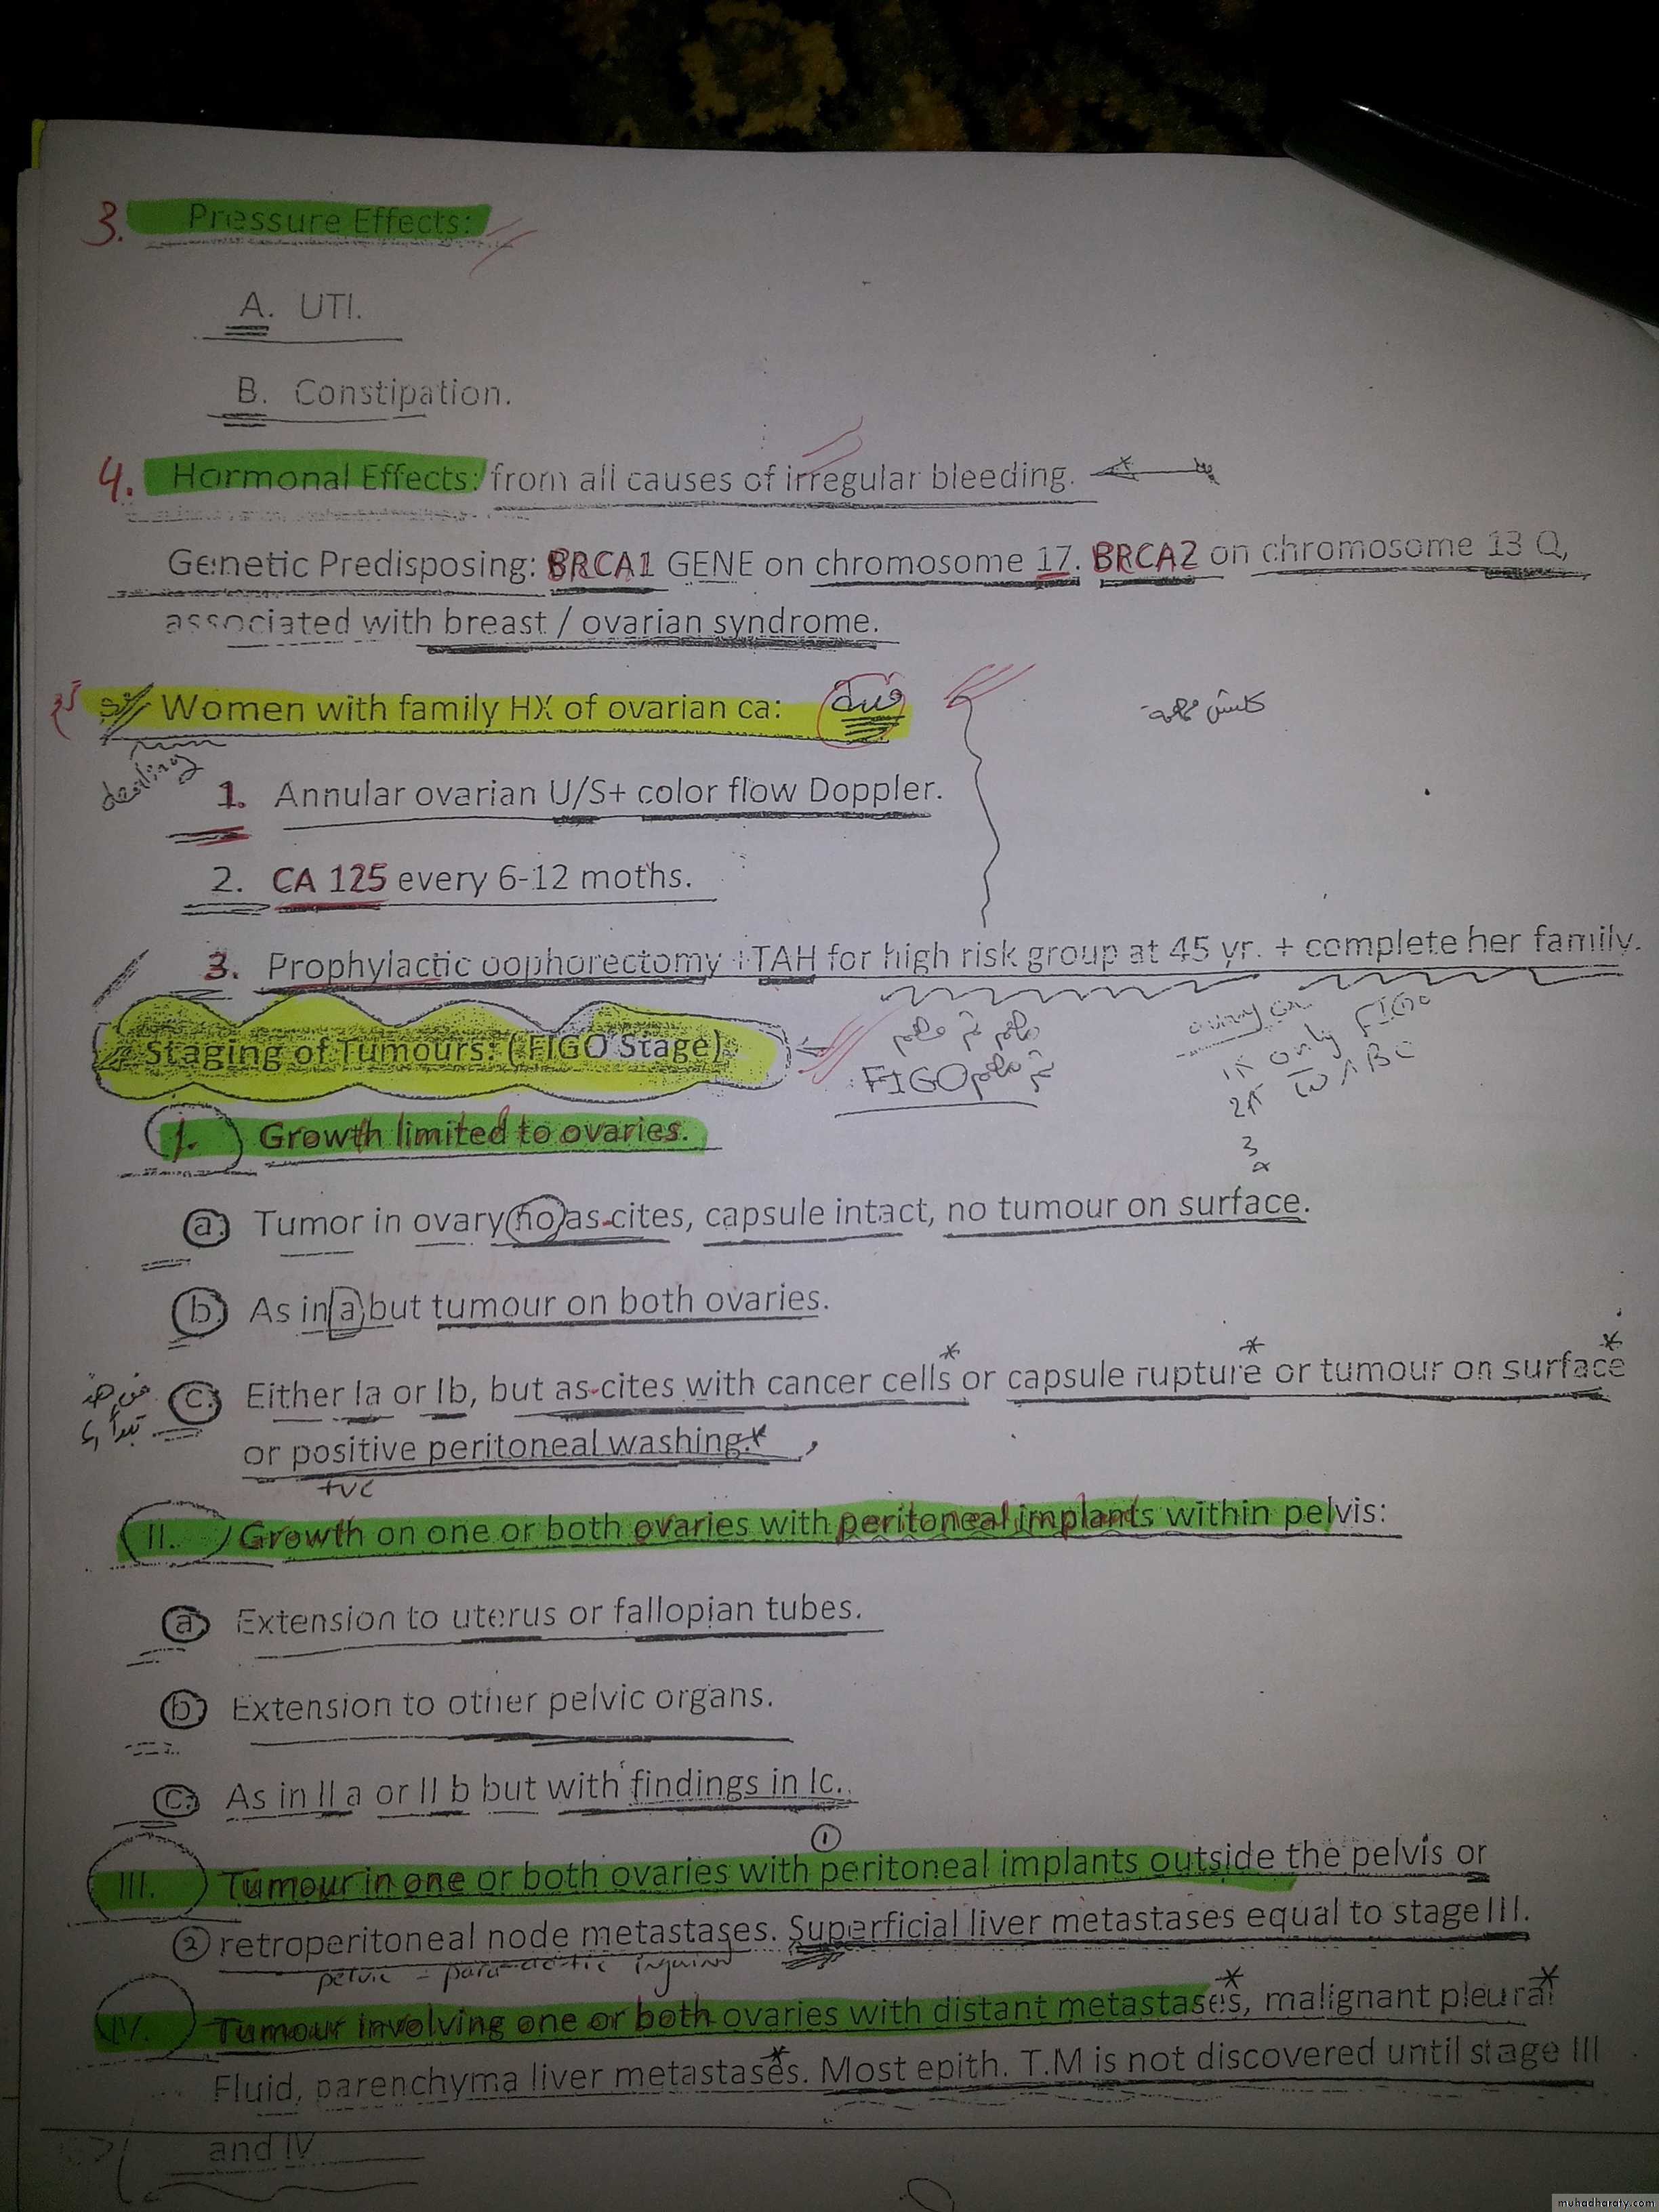 3. Pressure Effects:
A. UTI.
B. Constipation.
4. Hormonal Effects: from all causes of irregular bleeding.
Genetic Predisposing: BRCA1 GENE on chromosome 17. BRCA2 on chromosome 13 Q,
associated with breast / ovarian syndrome.
Women with family HX of ovarian ca:
dealing
1. Annular ovarian U/S+ color flow Doppler.
2. CA 125 every 6-12 moths.
3. Prophylactic oophorectomy +TAH for high risk group at 45 yr. + complete her family.
Staging of Tumours: (FIGO Stage).
FIGO
only FIGO
ABC
I. Growth limited to ovaries.
a. Tumor in ovary no as-cites, capsule intact, no tumour on surface.
b. As in a but tumour on both ovaries.
c. Either Ia or Ib, but as-cites with cancer cells* or capsule rupture* or tumour on surface*
or positive peritoneal washing.*
+ve
II. Growth on one or both ovaries with peritoneal implants within pelvis:
a. Extension to uterus or fallopian tubes.
b. Extension to other pelvic organs.
c. As in II a or II b but with findings in Ic.
III. Tumour in one or both ovaries with ① peritoneal implants outside the pelvis or
② retroperitoneal node metastases. Superficial liver metastases equal to stage III.
pelvic - para-aortic inguinal
IV. Tumour involving one or both ovaries with distant metastases*, malignant pleural*
Fluid, parenchyma liver metastases*. Most epith. T.M is not discovered until stage III
and IV
muhadharaty.com